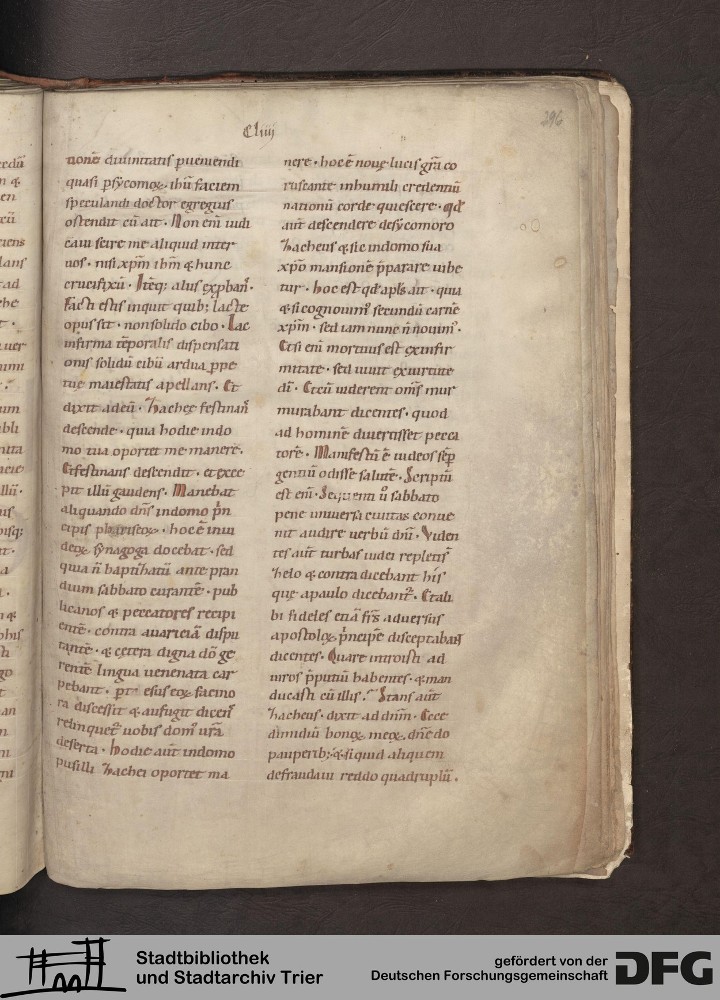 Cliiii
296
tionē diuinitatis ꝑueniendi
quasi ꝑ sẏcomoꝝ · ihm̄ faciem
speculandi doctor egregius
ostendit cū ait · Non em̄ iudi
caui scire me aliquid inter
uos · nisi xp̄m ihm̄ & hunc
crucifixū · Itēq; alius exp̄ban̄ ·
Facti estis inquit quib; lacte
opus sit · non solido cibo · Lac
infirma tēporalis dispensati
onis solidū cibū ardua ꝓpe
tue maiestatis apellans · Et
dixit ad eū · Zachee festinan̄
descende · quia hodie in do
mo tua oportet me manere ·
Et festinans descendit · et exce
pit illū gaudens · Manebat
aliquando dn̄s in domo p̄n
cipis phariseoꝝ · hoc ē in iu
deoꝝ sẏnagoga docebat · sed
quia n̄ baptizatū ante pran
dium sabbato curantē · pub
licanos & peccatores recipi
entē · contra auariciā dispu
tantē · & cetera digna dō ge
rentē lingua uenenata car
pebant · ꝑtesus eoꝝ facino
ra discessit & aufugit dicen̄s
relinquet᷑ uobis dom᷒ ur̄a
deserta · hodie aūt in domo
pusilli zachei oportet ma
nere · hoc ē nouę lucis gr̄a co
ruscante in humili credentiū
nationū corde quiescere · qd̄
aūt descendere de sẏcomoro
zacheus & sic in domo sua
xp̄o mansionē p̄parare iube
tur · hoc est qd̄ apl̄s ait · quia
& si cognouim᷒ secundū carnē
xp̄m · sed iam nunc n̄ nouim᷒ ·
Etsi em̄ mortuus est ex infir
mitate · sed uiuit ex uirtute
dī · Et cū uiderent om̄s mur
murabant dicentes · quod
ad hominē diuertisset pecca
torē · Manifestū ē iudeos sēp
gentiū odisse salutē · Scriptū
est em̄ · Sequenti u̅ sabbato
pene uniuersa ciuitas conue
nit audire uerbū dn̄i · Viden
tes aūt turbas iudei repleti s̄
zelo & contra dicebant his
que a paulo dicebant᷑ · Et ali
bi fideles etiā fr̄s aduersus
apostoloꝝ p̄ncipē disceptabant
dicentes · Quare introisti ad
uiros p̄putiū habentes · & man
ducasti cū illis · Stans aūt
zacheus · dixit ad dn̄m · Ecce
dimidiū bonoꝝ meoꝝ · dn̄e do
pauperib; · & si quid aliquem
defraudaui reddo quadruplū ·
Stadtbibliothek
und Stadtarchiv Trier
gefördert von der
Deutschen Forschungsgemeinschaft
DFG